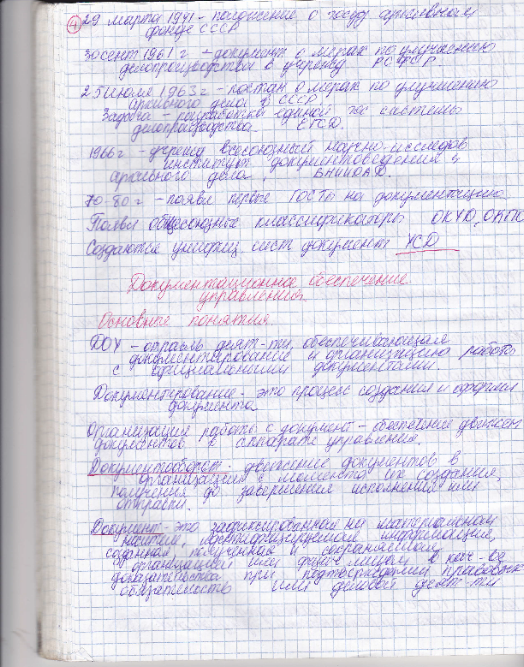 ④ 29 марта 1941 - положение о госуд архивном
фонде СССР
30 сент 1961 г - документ о мерах по улучшению
делопроизводства в учрежд РСФСР
25 июля 1963 г - постан о мерах по улучшению
архивного дела в СССР.
Задача - разработки единой гос системы
делопроизводства ЕГСД.
1966 г - учрежд Всесоюзный научно-исследов
институт документоведения и
архивного дела. ВНИИДАД.
70-80 г - появл первые ГОСТы на документацию
Появл общесоюзные классификаторы ОКУД, ОКПО
Создаются унифиц сист документ УСД
Документационное обеспечение
управления.
Основные понятия
ДОУ - отрасль деят-ти, обеспечивающая
документирование и организацию работы
с официальными документами.
Документирование - это процесс создания и оформлен
документа
Организация работы с документ - обеспечение движен
документов в аппарате управления.
Документооборот - движение документов в
организации с момента их создания,
получения до завершения исполнения или
отправки.
Документ - это зафиксированная на материальном
носителе, идентифицируемая информация,
созданная, полученная и сохраняемая
организацией или физич лицом, в кач-ве
доказательства при подтверждении правовых
обязательств или деловой деят-ти